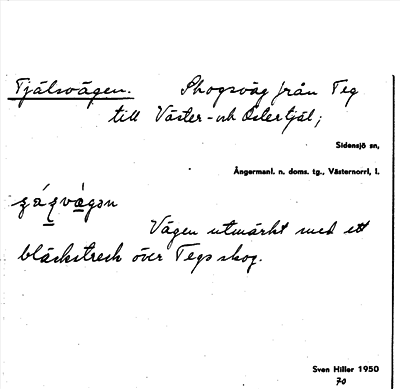 Tjälsvägen. Skogsväg från Teg
till Väster- och Östertjäl;
Sidensjö sn,
Ångermanl. n. doms. tg., Västernorrl, l.
Vägen utmärkt med ett
bläckstreck över Tegs skog.
Sven Hiller 1950
70